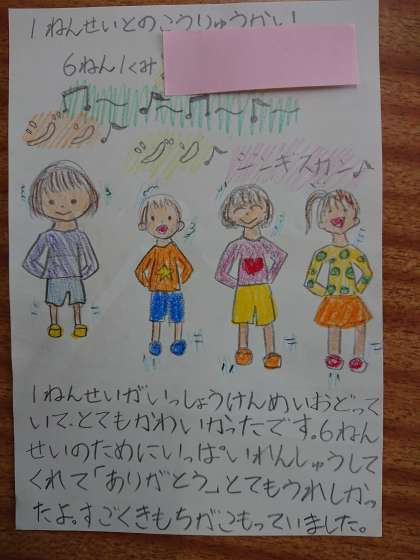 1ねんせいとのこうりゅうかい!
6ねん1くみ
ジン♪
ジン♪
ジンギスカン♪
1ねんせいがいっしょうけんめいおどって
いて、とてもかわいかったです。6ねん
せいのためにいっぱいれんしゅうして
くれて「ありがとう」とてもうれしかっ
たよ。すごくきもちがこもっていました。